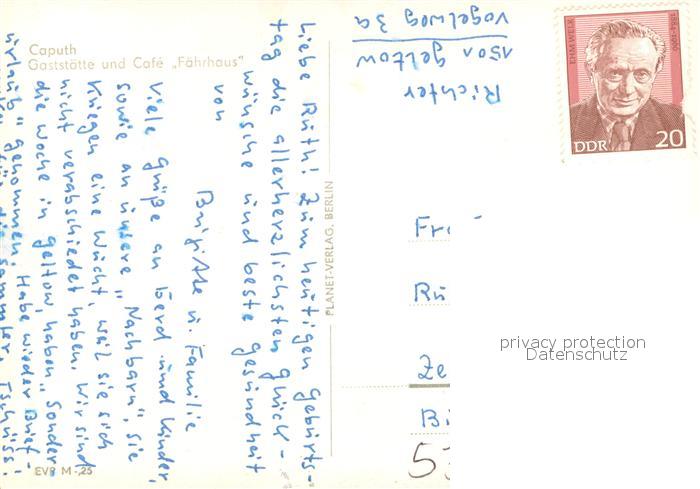 Caputh
Gaststätte und Café „Fährhaus"
Liebe Ruth! Zum heutigen Geburts-
tag die allerherzlichsten Glück-
wünsche und beste Gesundheit
von
Brigitte u. Familie
Viele Grüße an Berd und Kinder,
sowie an unsere „Nachbarn", sie
kriegen eine Wucht, weil sie sich
nicht verabschiedet haben. Wir sind
die Woche in Geltow, haben „Sonder-
urlaub" genommen. Habe wieder Brief-
Tschüss!
EVP M -,25
PLANET-VERLAG, BERLIN
Richter
1501 Geltow
Vogelweg 3a
EHM WELK
1884-1966
DDR
20
Fr
Rü
Ze
Bi
privacy protection
Datenschutz